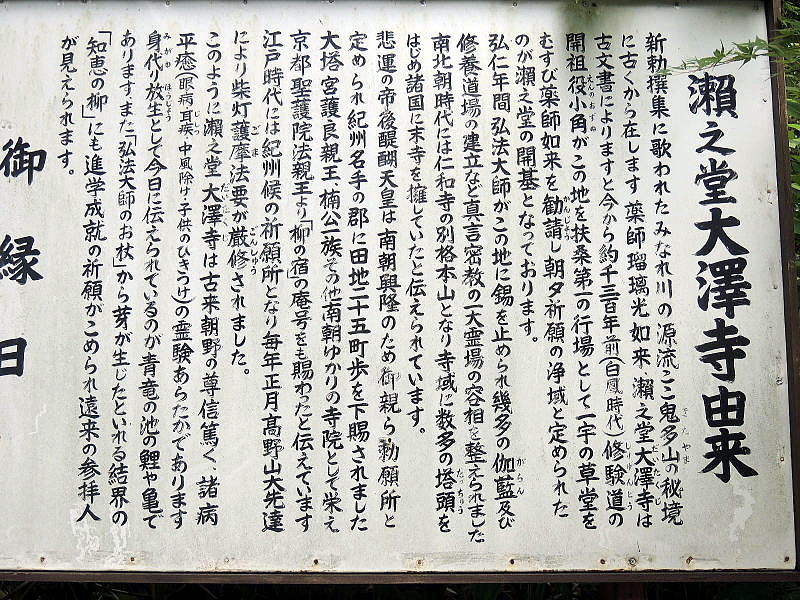 瀬之堂大澤寺由来
新勅撰集に歌われたみなれ川の源流ここ鬼多山の秘境
に古くから在します 薬師瑠璃光如来 瀬之堂大澤寺は
古文書によりますと今から約千三百年前(白鳳時代)修験道の
開祖役小角がこの地を扶桑第一の行場として一宇の草堂を
むすび薬師如来を勧請し朝夕祈願の浄域と定められた
のが瀬之堂の開基となっております。
弘仁年間 弘法大師がこの地に錫を止められ幾多の伽藍及び
修養道場の建立など真言密教の一大霊場の容相を整えられました
南北朝時代には仁和寺の別格本山となり寺域に数多の塔頭を
はじめ諸国に末寺を擁していたと伝えられています。
悲運の帝後醍醐天皇は南朝興隆のため御親ら勅願所と
定められ紀州名手の郡に田地二十五町歩を下賜されました
大塔宮護良親王、楠公一族その他南朝ゆかりの寺院として栄え
京都聖護院法親王より「柳の宿」の庵号をも賜わったと伝えています
江戸時代には紀州候の祈願所となり毎年正月髙野山大先達
により柴灯護摩法要が厳修されました。
このように瀬之堂 大澤寺は古来朝野の尊信篤く、諸病
平癒(眼病、耳疾、中風除け、子供のひきつけ)の霊験あらたかであります
身代り放生として今日に伝えられているのが青竜の池の鯉や亀で
あります、また「弘法大師のお杖」から芽が生じたといれる結界の
「知恵の柳」にも進学成就の祈願がこめられ遠来の参拝人
が見えられます。
御縁日